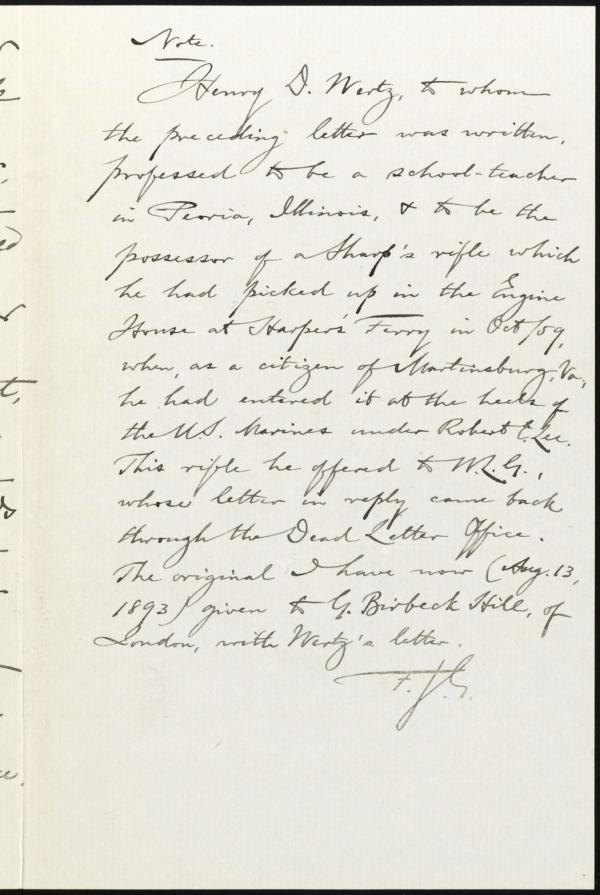 Note.
Henry D. Wertz, to whom
the preceding letter was written,
professed to be a school-teacher
in Peoria, Illinois, & to be the
possessor of a Sharp's rifle which
he had picked up in the Engine
House at Harper's Ferry in Oct/59,
when, as a citizen of Martinsburg, Va.,
he had entered it at the heels of
the U.S. Marines under Robert E. Lee.
This rifle he offered to W.L.G.,
whose letter in reply came back
through the Dead Letter Office.
The original I have now (Aug. 13,
1893) given to G. Birbeck Hill, of
London, with Wertz's letter.
F.J.G.